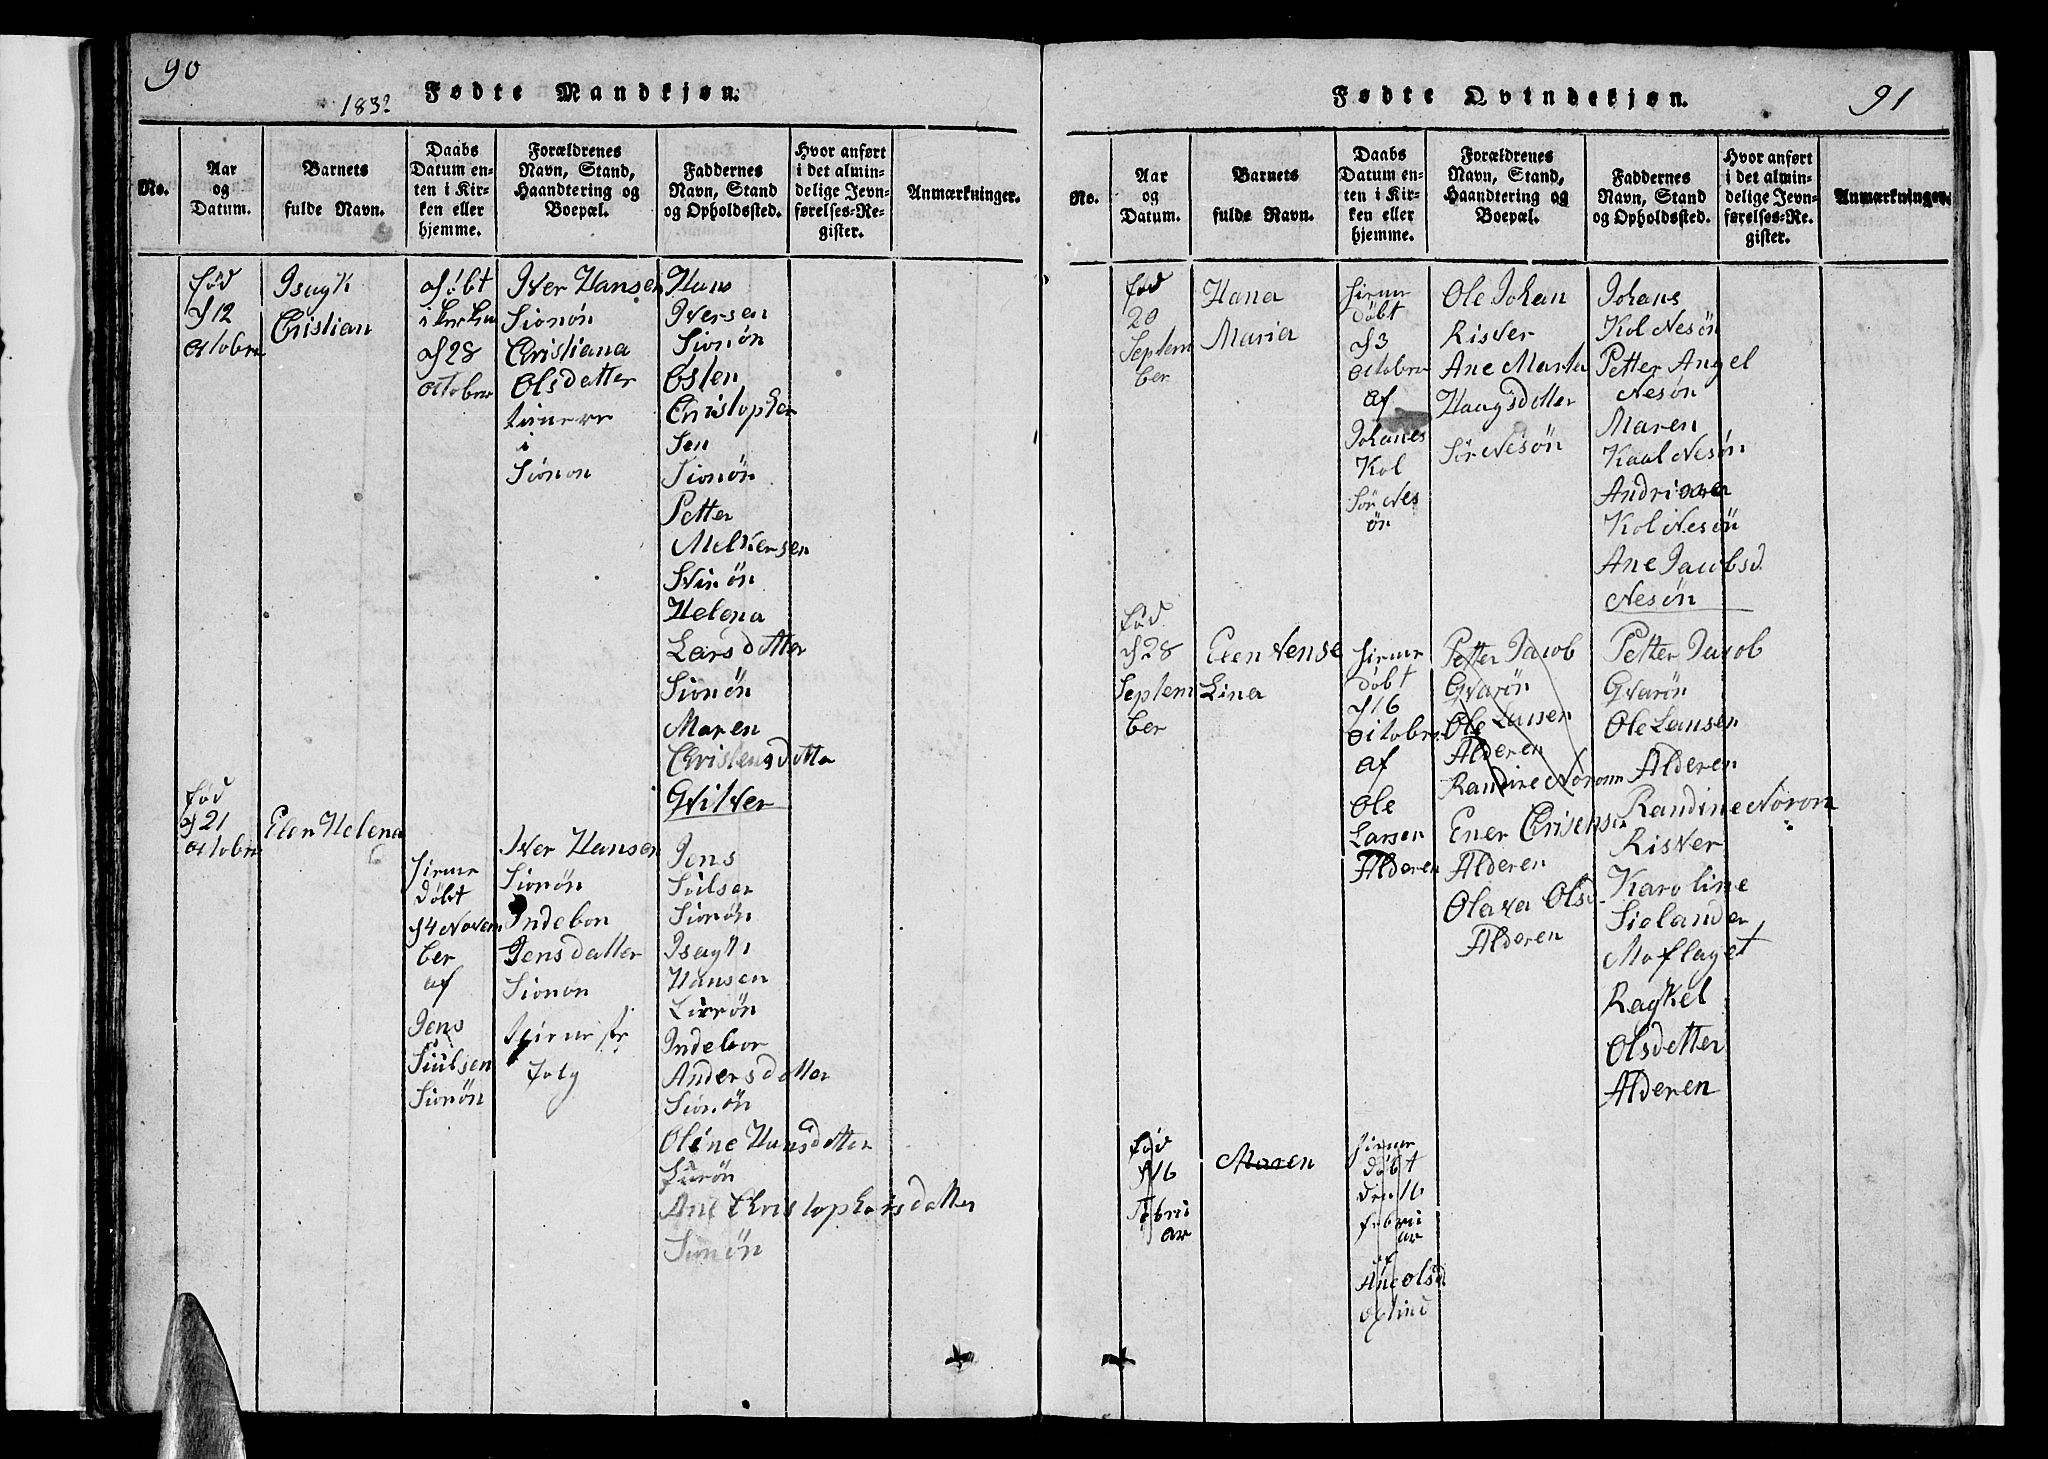 90
1832
Fødte Mandkjøn.
No.
Aar
og
Datum.
Barnets
fulde Navn.
Daabs
Datum en-
ten i Kir-
ken eller
hjemme.
Forældrenes
Navn, Stand,
Haandtering og
Boepæl.
Faddernes
Navn, Stand
og Opholdssted.
Hvor anført
i det almin-
delige Jevn-
førelses-Re-
gister.
Anmærkninger.
fød
d 12
octobru
Isagk
Cristian
døbt
i kerken
d 28
octobru
Iver Hansen
Sionøn
Christiana
Olsdatter
i
Sionon
Hans
Iversen
Sionøn
Osten
Christopher
sen
Sionøn
Petter
Melkersen
Svinøn
Helena
Larsdatter
Sionøn
Maren
Christensdatter
Gvilver
fød
d 21
octobru
Elen Helena
hiemr
døbt
d 4 Novem
ber
af
Jens
Siulsen
Sionøn
Iver Hansen
Sionøn
Indebor
Jensdatter
Sionon
Jens
Siulsen
Sionøn
Isagk
Hansen
Lirøn
Indebor
Andersdatter
Sionøn
Oline Hansdatter
Ane Christophersdatter
Sionøn
91
Fødte Qvindekjøn.
No.
Aar
og
Datum.
Barnets
fulde Navn.
Daabs
Datum en-
ten i Kir-
ken eller
hjemme.
Forældrenes
Navn, Stand,
Haandtering og
Boepæl.
Faddernes
Navn, Stand
og Opholdssted.
Hvor anført
i det almin-
delige Jevn-
førelses-Re-
gister.
Anmærkninger.
fød
20
Septem
ber
Hana
Maria
hiemr
døbt
d 3
octobru
af
Johanes
Kol
Sør Nes
øn
Ole Johan
Risver
Ane Marta
Haagsdatter
Sør Nesøn
Johans
Kol Nesøn
Petter Angel
Nesøn
Maren
Kaal Nesøn
Kol Nesøn
Ane Jacobsd.
Nesøn
fød
d 28
Septem
ber
Elen Nense
Lina
hiemr
døbt
d 16
octobru
af
Ole
Larsen
Alderen
Petter Jacob
Gvarøn
Ole Larsen
Alderen
Randine Norom
Ener Crisensen
Alderen
Olava Olsd.
Alderen
Petter Jacob
Gvarøn
Ole Lansen
Alderen
Randine Norom
Risver
Karoline
Sielander
Moflaget
Ragkel
Olsdatter
Alderen
fød
d 16
Febru
ar
Maren
hiemr
døbt
den 16
februi
ar
af
Ane Olsd.